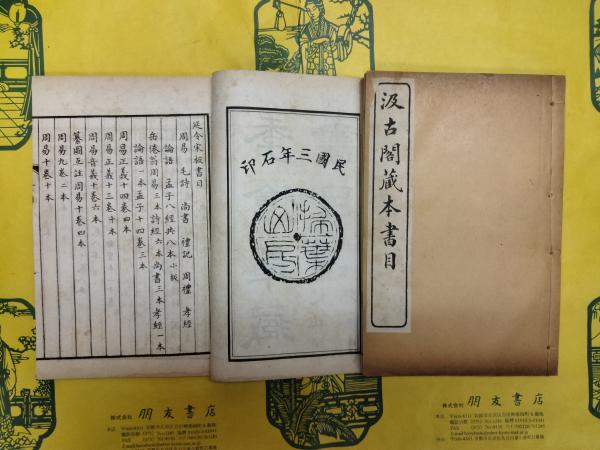 汲古閣藏本書目
民國三年石印
掃葉山房
延令宋板書目
周易 毛詩 尚書 禮記 周禮 孝經
論語 孟子八經共八本小板
岳倦翁周易三本詩經六本尚書三本孝經一本
論語一本孟子十四卷三本
周易正義十四卷四本
周易正義十三卷十本
周易音義十卷六本
纂圖互註周易十卷四本
周易九卷二本
周易十卷十本
株式会社 朋友書店
株式会社 朋友書店